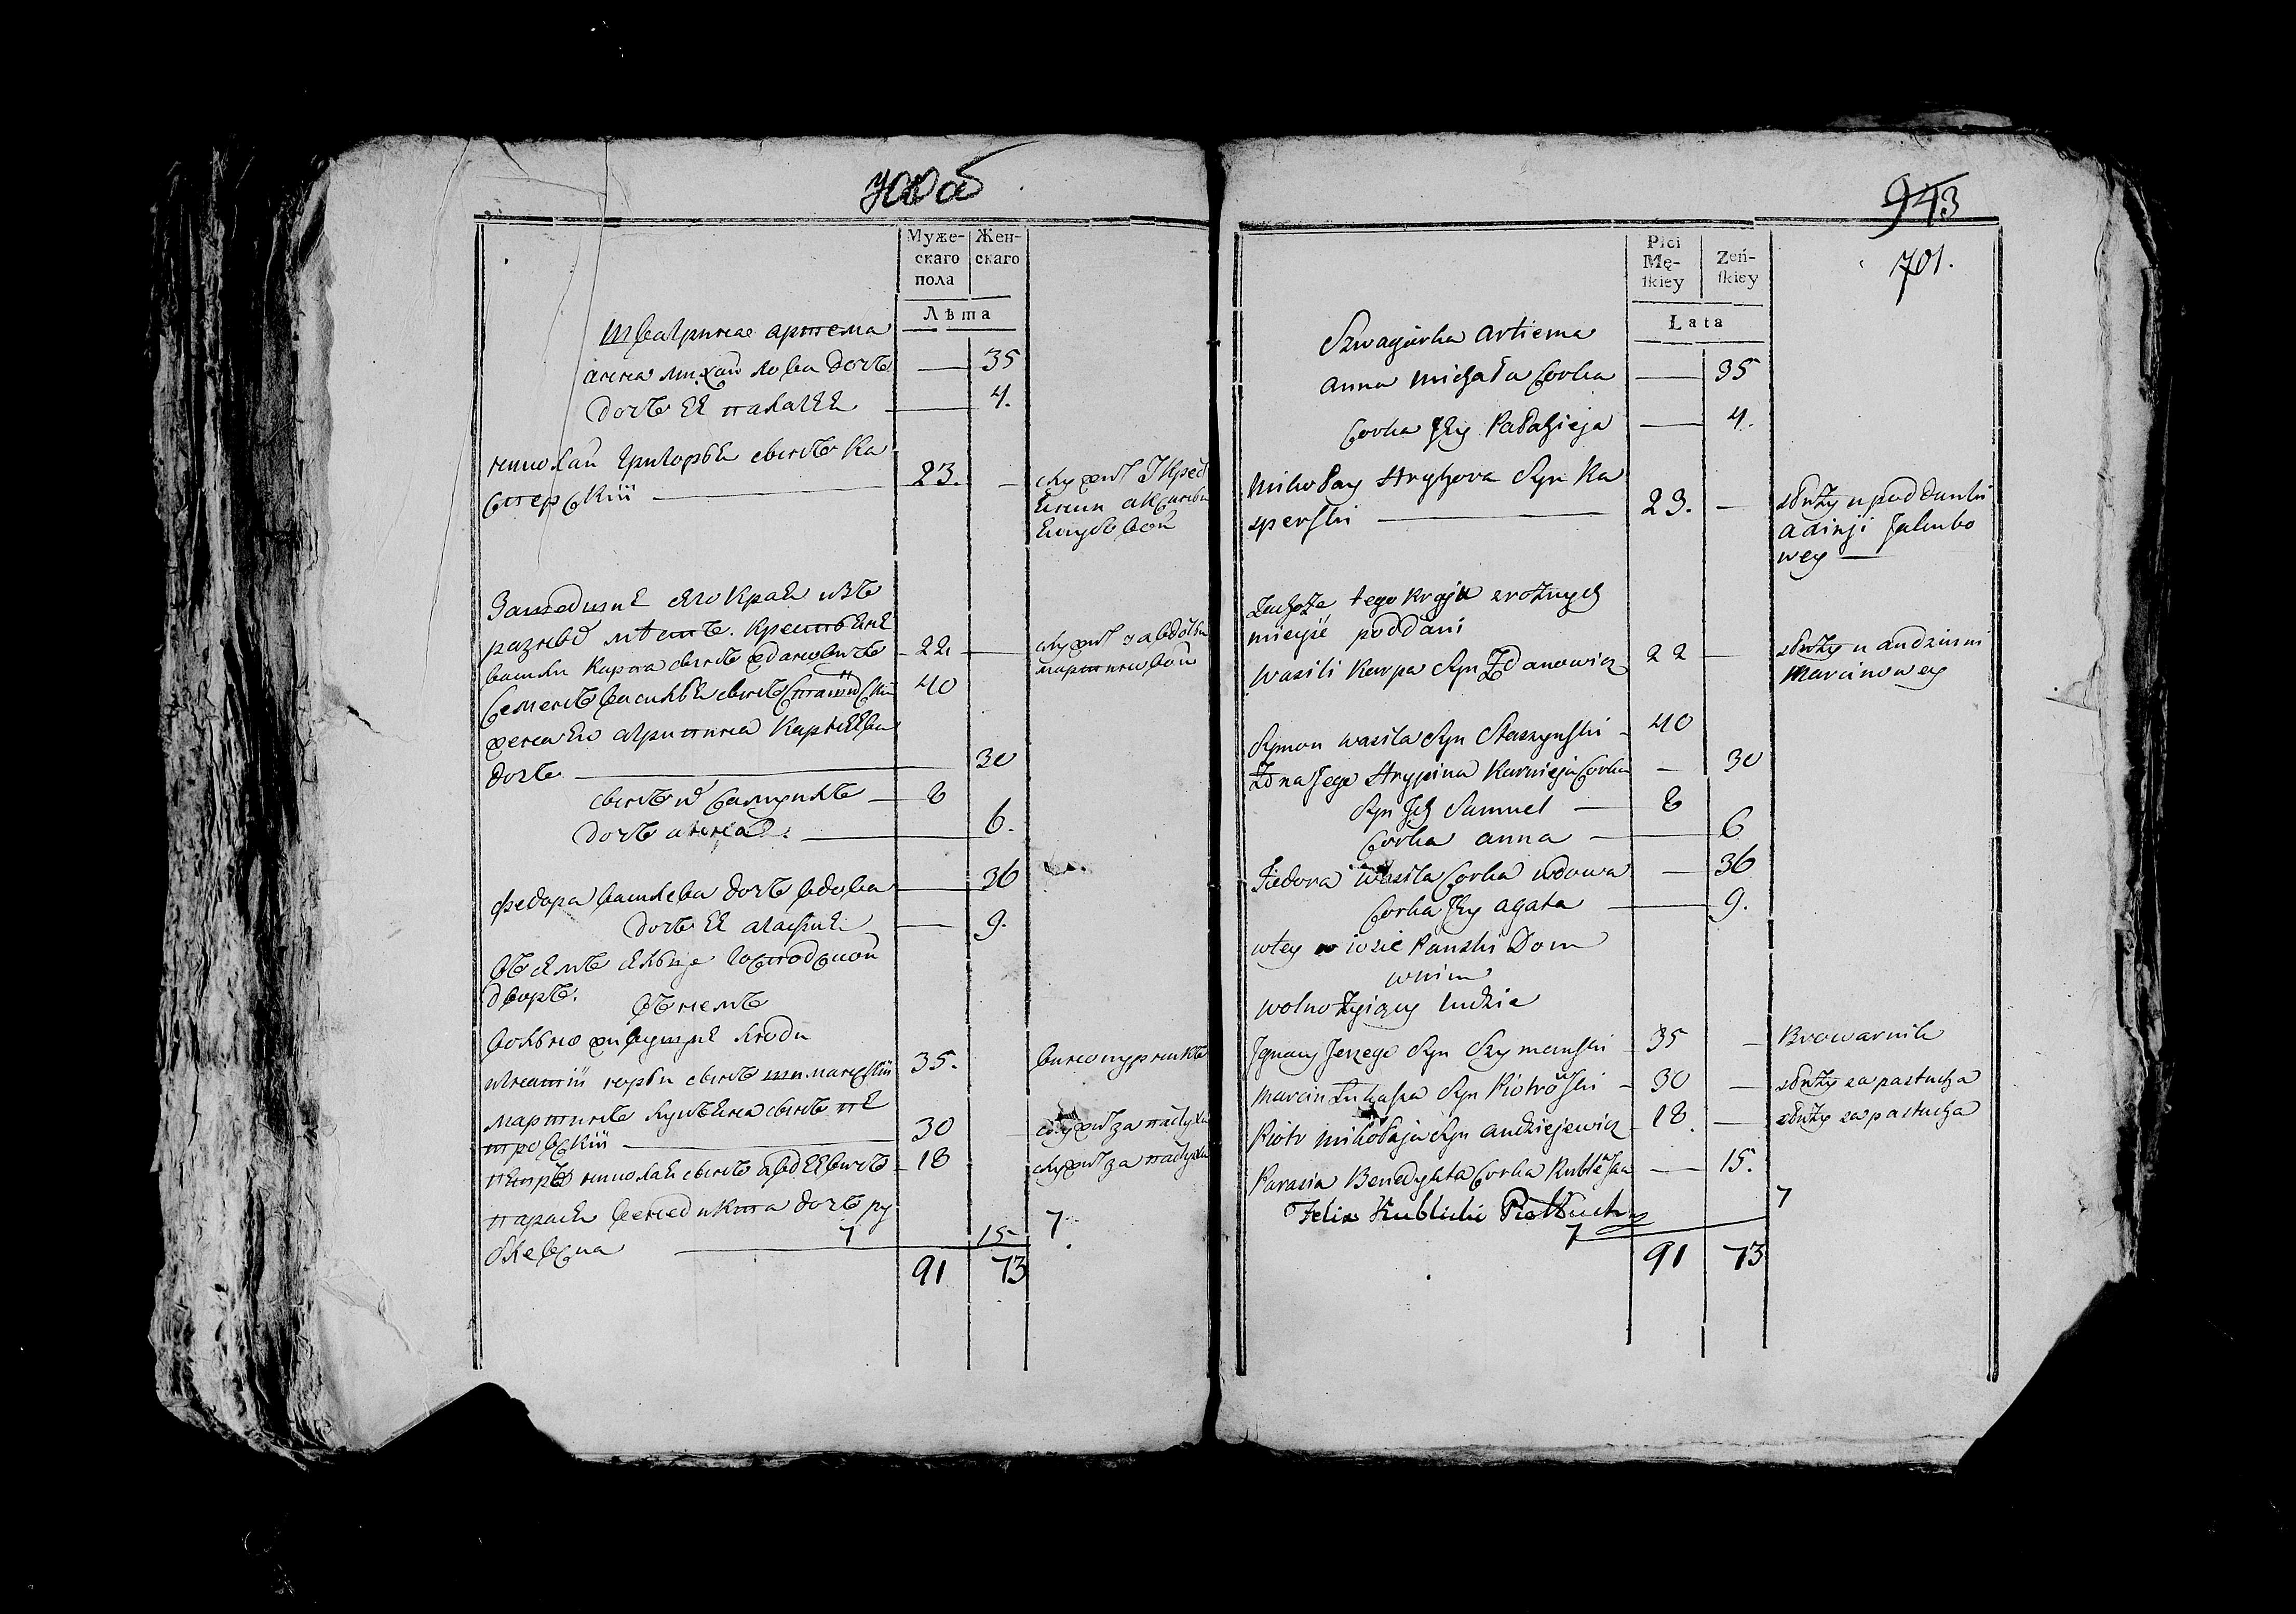 700 об
Муже-
скаго
пола
Жен-
скаго
Лѣта
Швагринае артема
анна михайлова дочь — 35
дочь ее палагея — 4.
николай григорья сынъ Ка
сперскій — 23. —
служит
Зашедшие сего края изъ
разных мѣстъ. крестьяне
васили карпа сынъ жданович 22. —
служит у авдотьи
мартиновой
семенъ василья сынъ 40
жена его агрипина карнеева
дочь — 30
сынъ их самуилъ — 8
дочь анна — 6.
федора василева дочь вдова — 36
дочь ее агафия — 9.
господской
дворъ. Въ немъ
вольно живущие люди
игнатiй юрьи сынъ шиманский 35.
винокурникъ
мартинъ лукьяна сынъ пе
тровскiй — 30
служит за пастуха
петръ николая сынъ авдеевичъ 18
служит за пастуха
парася бенедикта дочь ру
блевсна 7 15 7
91 73
943
701.
Płci
Mę-
ſkiey
Zeń-
ſkiey
Lata
Szwagierka Artiema
Anna Michała Corka — 35
Corka Jey Pałagieja — 4.
Mikołay Hryhora Syn Ka
sperski — 23. —
służy u poddanki
Jakubo
wey —
Zachoże tego kraju z rożnych
mieysc poddani
Wasili Karpa Syn Zdanowicz 22 —
służy u
Marcinowey
Symon Wasila Syn Staszynski — 40
Żona Jego Hrypina Karnieja Corka — 30
Syn Jch Samuel — 8
Corka Anna — 6
Fiedora Wasila Corka wdowa — 36
Corka Jey Agata — 9.
w tey w Panski Dom
w nim
wolno Żyiący ludzie
Jgnacy Jerzego Syn Szymanski — 35 —
Browarnik
Marcin Łukasza Syn Piotrowski — 30 —
służy za pastucha
Piotr Mikołaja Syn Andziejewicz — 18. —
służy za pastucha
Parasia Benedykta Corka — 15.
Felix Kublicki Piottuch 7
7
91 73